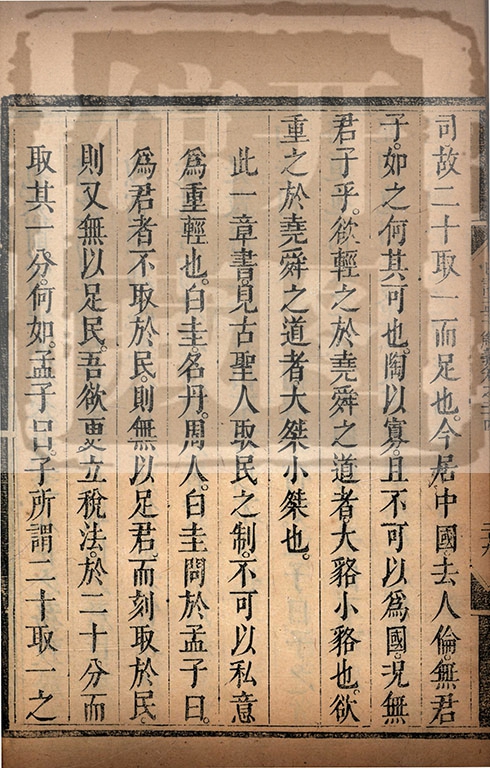 司故二十取一而足也。今居中國。去人倫。無君
子。如之何其可也。陶以寡。且不可以爲國。況無
君子乎。欲輕之於堯舜之道者。大貉小貉也。欲
重之於堯舜之道者大桀小桀也。
此一章書。見古聖人取民之制。不可以私意
爲重輕也。白圭。名丹。周人。白圭問於孟子曰。
爲君者不取於民。則無以足君。而刻取於民。
則又無以足民。吾欲更立稅法。於二十分而
取其一分。何如。孟子曰。子所謂二十取一之